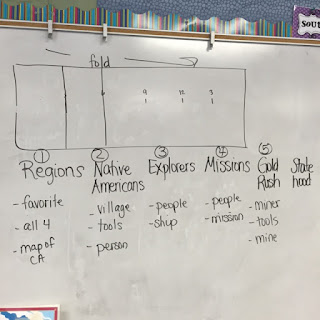 fold
① Regions
- favorite
- all 4
- map of
CA
② Native
Americans
- village
- tools
- person
③ Explorers
- people
- ship
④ Missions
- people
- mission
⑤ Gold
Rush
- miner
- tools
- mine
State
hood